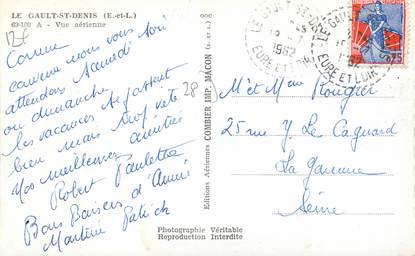 LE GAULT-ST-DENIS (E.-et-L.)
69-100 A - Vue aérienne
12€
Comme
convenu nous vous
attendons Samedi
ou dimanche
les vacances se passent
bien mais trop vite
Nos meilleures amitiés
Robert Paulette
Bons Baisers d'Annie
Martine Patrick
28
Editions Aériennes COMBIER IMP. MACON (S.-et-L.)
Photographie Véritable
Reproduction Interdite
1962
EURE ET LOIR
EURE ET LOIR
M et Mme Rougier
25 rue Y. Le Coguard
La Garenne
Seine